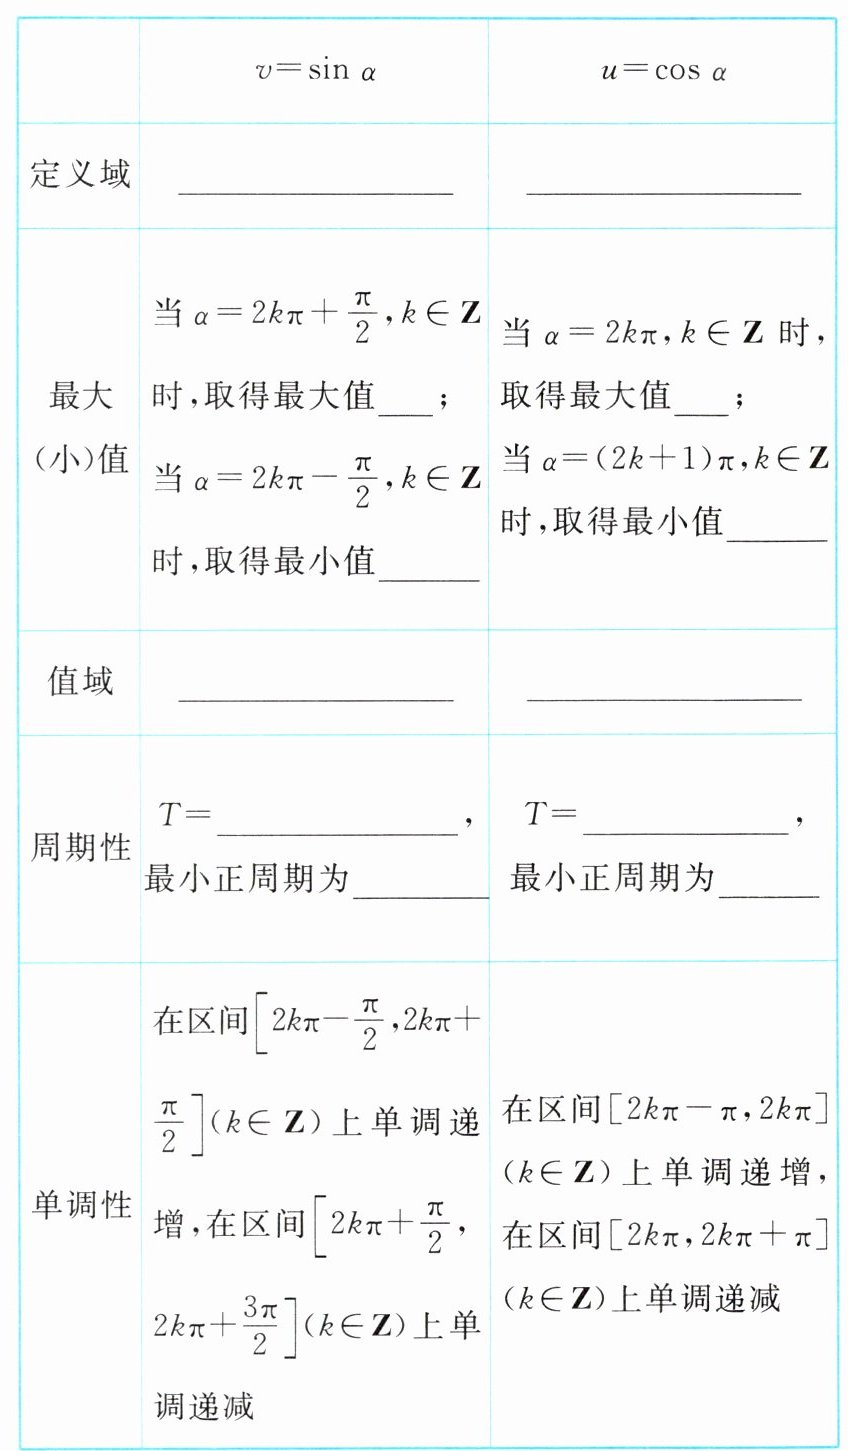 v=sin α
u=cos α
定义域 ________ ________
最大
(小)值
当 α=2kπ+π/2,k∈Z
时,取得最大值___;
当 α=2kπ-π/2,k∈Z
时,取得最小值_____
当 α=2kπ,k∈Z 时,
取得最大值___;
当 α=(2k+1)π,k∈Z
时,取得最小值_____
值域 ________ ________
周期性
T=________,
最小正周期为_____
T=________,
最小正周期为_____
单调性
在区间[2kπ-π/2,2kπ+
π/2](k∈Z)上单调递
增,在区间[2kπ+π/2,
2kπ+3π/2](k∈Z)上单
调递减
在区间[2kπ-π,2kπ]
(k∈Z)上单调递增,
在区间[2kπ,2kπ+π]
(k∈Z)上单调递减